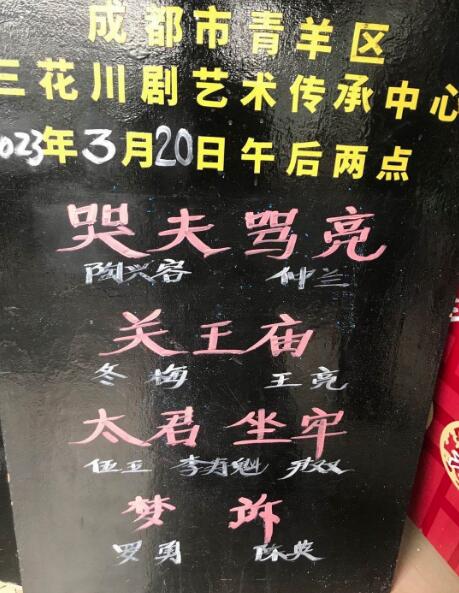 成都市青羊区
三花川剧艺术传承中心
2023年3月20日午后两点
哭夫骂亮
陶兴容 仲兰
关王庙
冬梅 王亮
太君坐牢
伍卫 李有魁 尹双
梦诉
罗勇 陈英